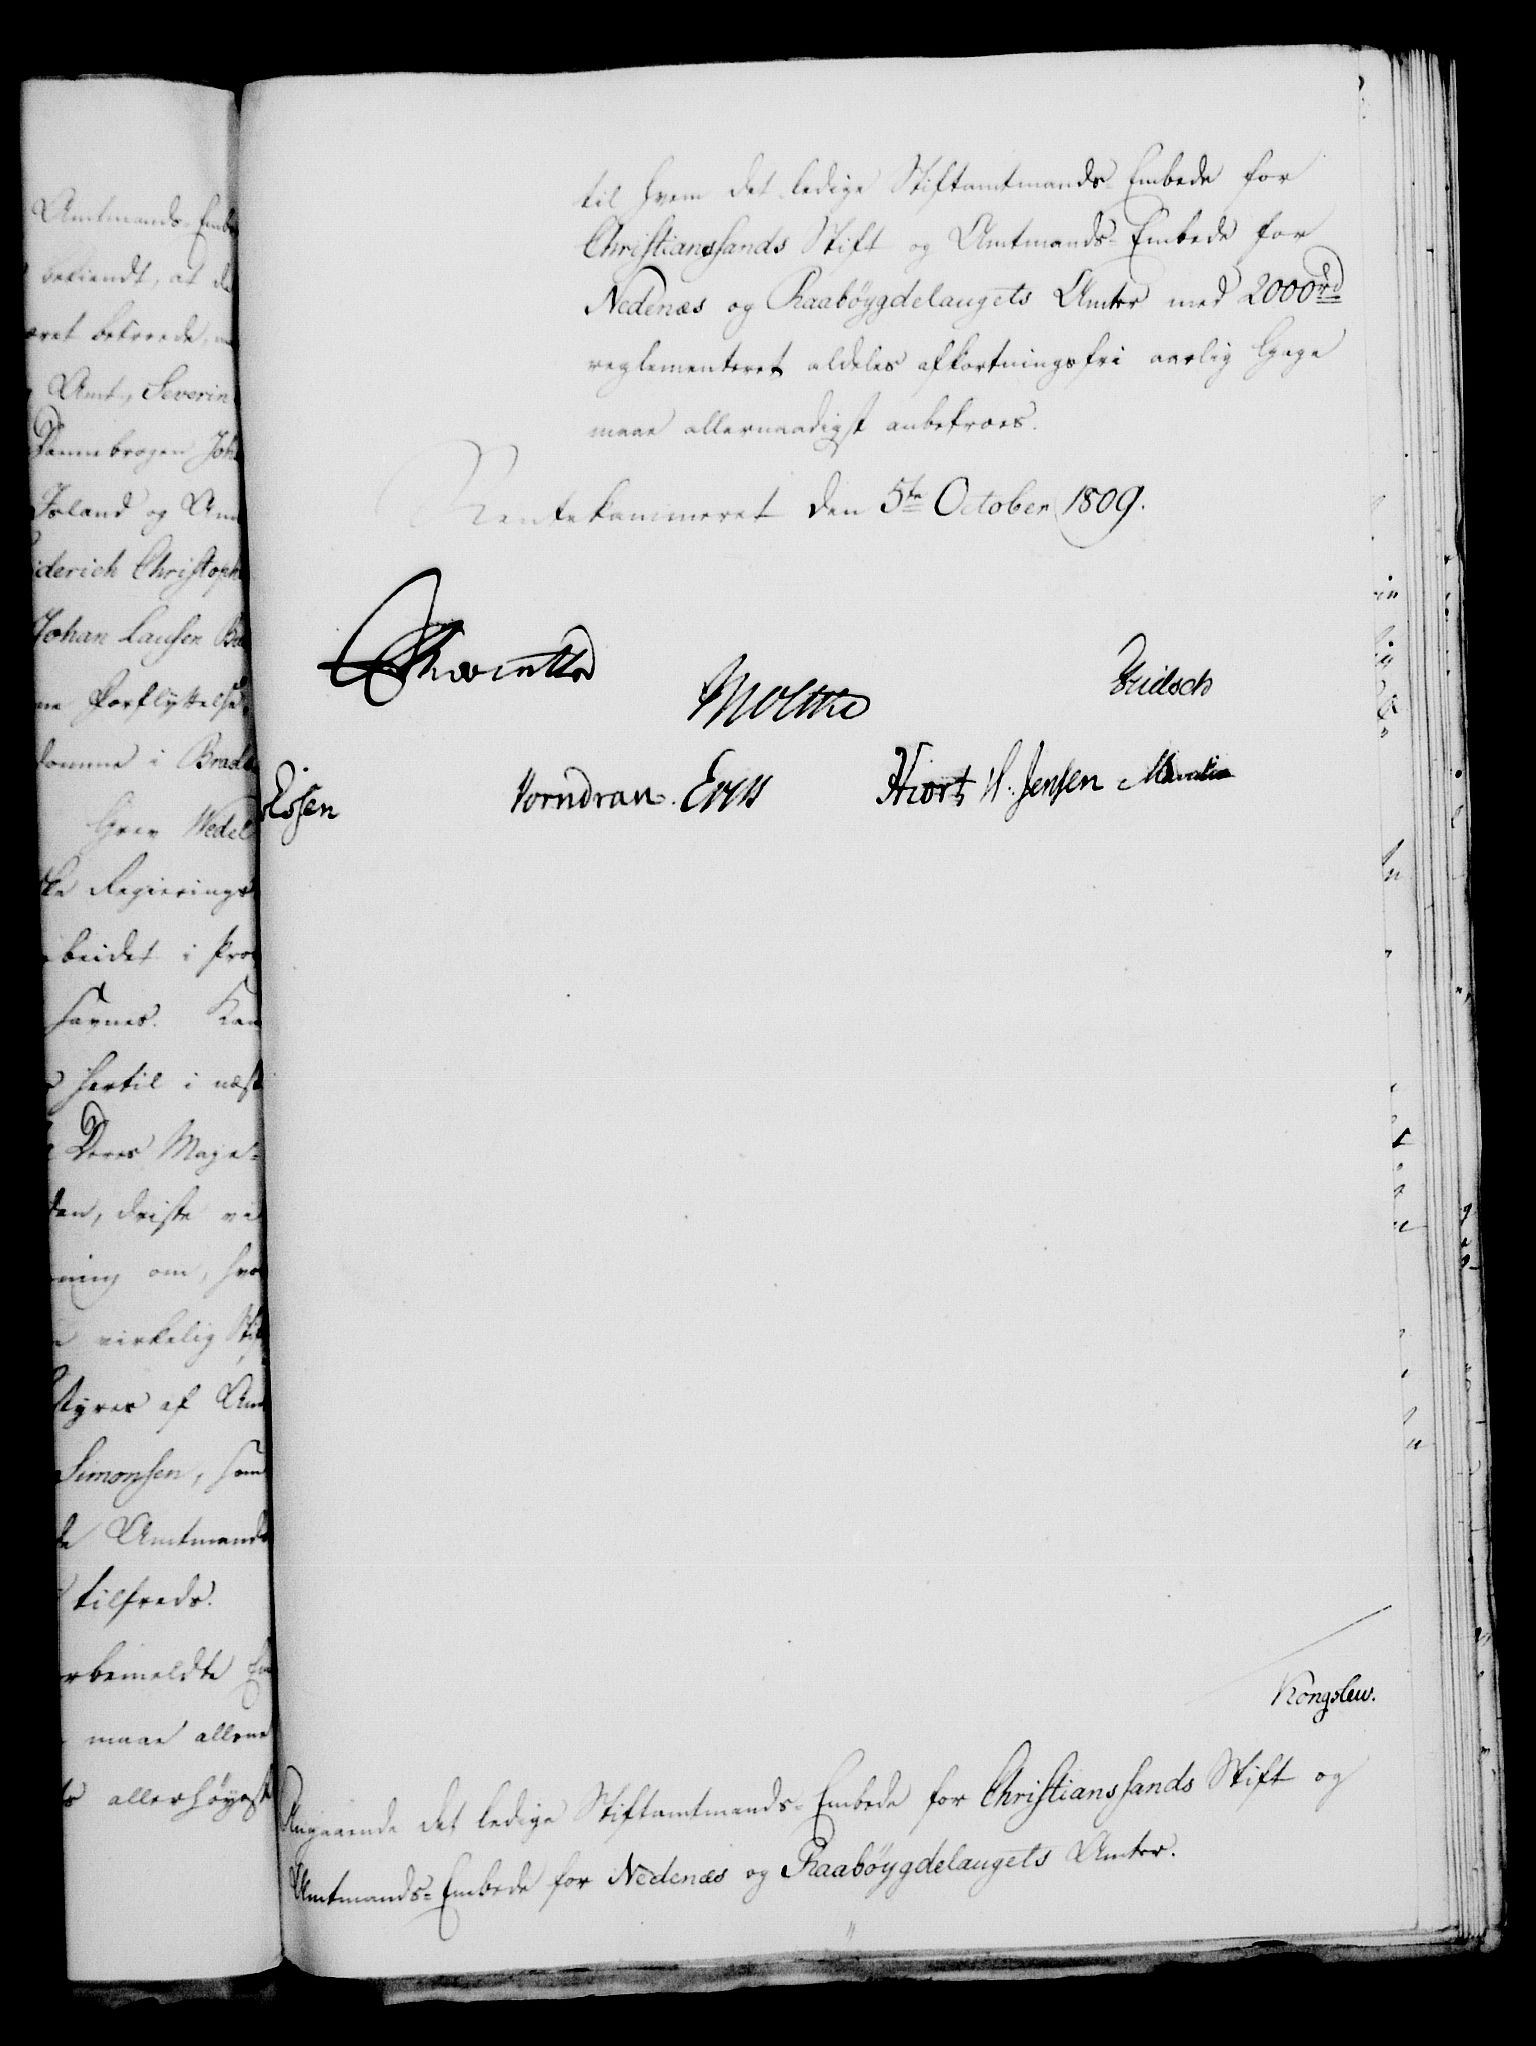 Amtmands-Emb
bekiendt, at d
været betroede,
Amt, Severin
Dannebrogen Joh
Island og Am
iderich Christoph
Johan Lausen
Forflyttelse
domme i
Grev Wedel
ske Regierings
beidet i Pro
savnes. Kan
hertil i næst
Deres Maje-
den, driste vi
ning om, hvo
virkelig Stif
styres af Am
Simonsen, som
de Amtmands
tilfreds.
rbemeldte
maae allern
allerhøyst
til hvem det ledige Stiftamtmands-Embede for
Christianssands Stift og Amtmands-Embede for
Nedenæs og Raabøygdelaugets Amter med 2000rd
reglementeret aldeles afkortningsfri aarlig Gage
maae allernaadigst anbetroes.
Rentekammeret den 5te October 1809.
Moltke
Essen Vorndran. Hiort H. Jensen
Kongslew.
Angaaende det ledige Stiftamtmands-Embede for Christianssands Stift og
Amtmands-Embede for Nedenæs og Raabøygdelaugets Amter.